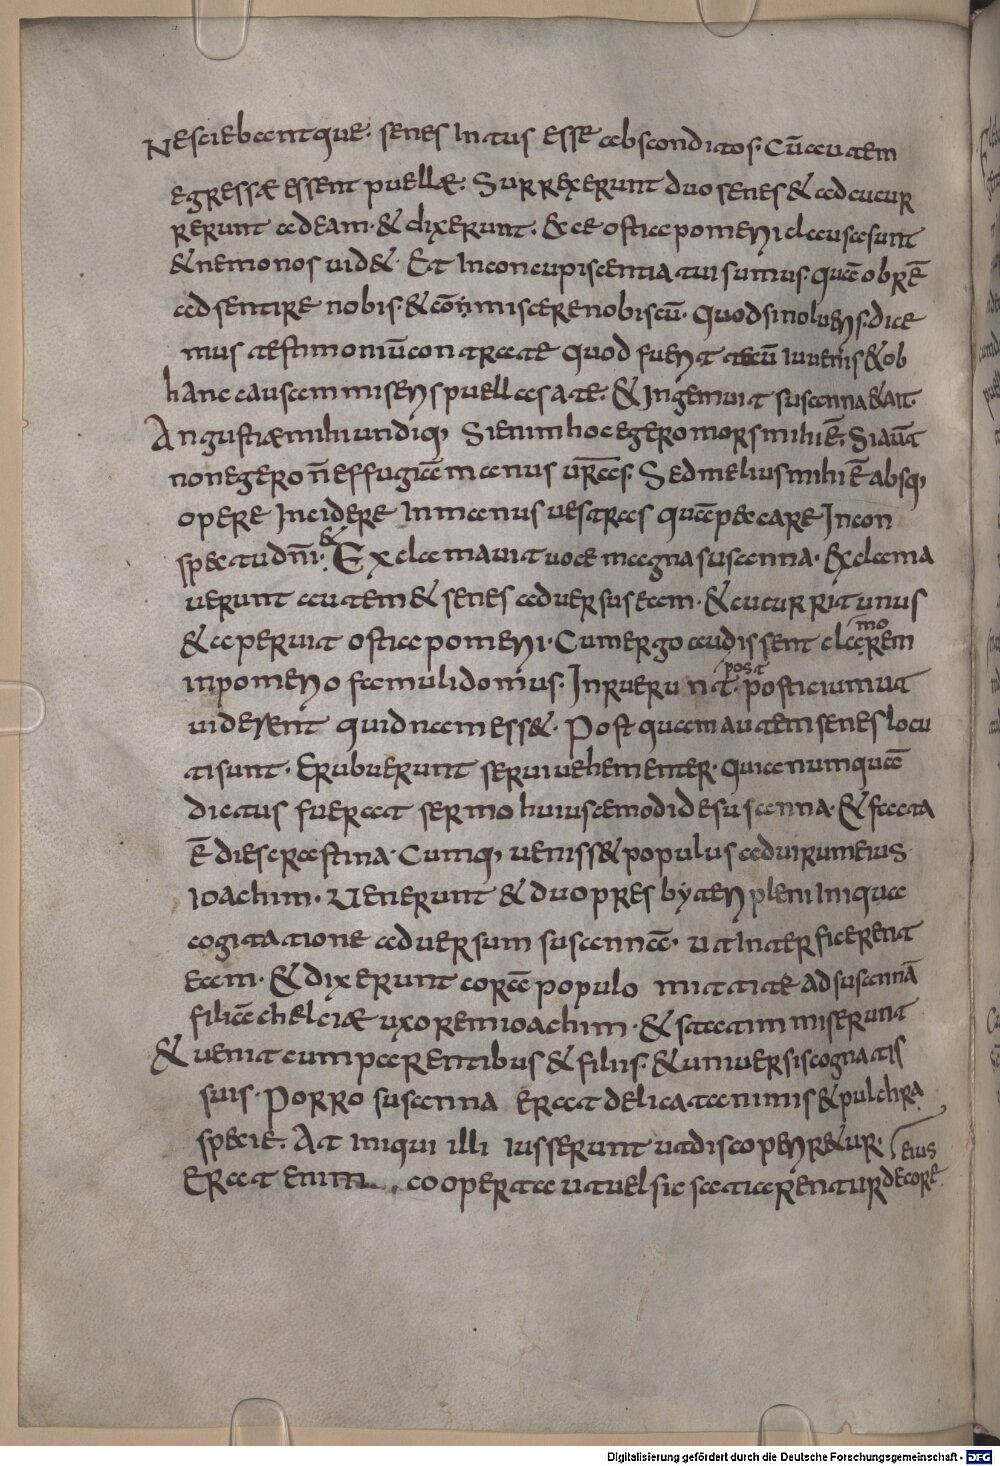 Nesciebantque. senes Intus esse absconditos. Cū autem
egressæ essent puellæ. Surrexerunt duo senes & adcucur
rerunt adeam. & dixerunt. Ecce ostia pomerii clausa sunt
& nemo nos uid&. Et In concupiscentia tui sumus. quā obrē
adsentire nobis. & cōmmiscere nobiscū. quod si nolueris. dice
mus testimoniū contra te quod fuerit tecū iuuenis & ob
hanc causam miseris puellas a te. & Ingemuit susanna & ait.
Angustiæ mihi undiq; Si enim hoc egero mors mihi ē. Si aūt
non egero ñ effugiā manus ur̄as. Sed melius mihi ē absq;
opere Incidere In manus uestras quā peccare In con
spectu dn̄i. & Exclamauit uoce magna susanna. & exclama
uerunt autem & senes aduersus eam. & cucurrit unus
& aperuit ostia pomerii. Cum ergo audissent clamorem
in pomerio famuli domus. Inruerunt. post posticium ut
uiderent quidnam ess&. Postquam autem senes locu
ti sunt. Erubuerunt serui uehementer. quia numquā
dictus fuerat sermo huiuscemodi de susanna. & facta
ē dies crastina. Cumq; ueniss& populus ad uirum eius
Ioachim. Uenerunt & duo presbyteri pleni Iniqua
cogitatione aduersum susannā. ut Interficerent
eam. & dixerunt corā populo mittite ad susannā
filiā chelciæ uxorem ioachim. & statim miserunt
& uenit cum parentibus & filiis. & uniuersis cognatis
suis. Porro susanna erat delicata nimis & pulchra
specie. At iniqui illi iusserunt ut discoperir&ur.
Erat enim cooperta ut uel sic satiarentur decore eius
Digitalisierung gefördert durch die Deutsche Forschungsgemeinschaft - DFG